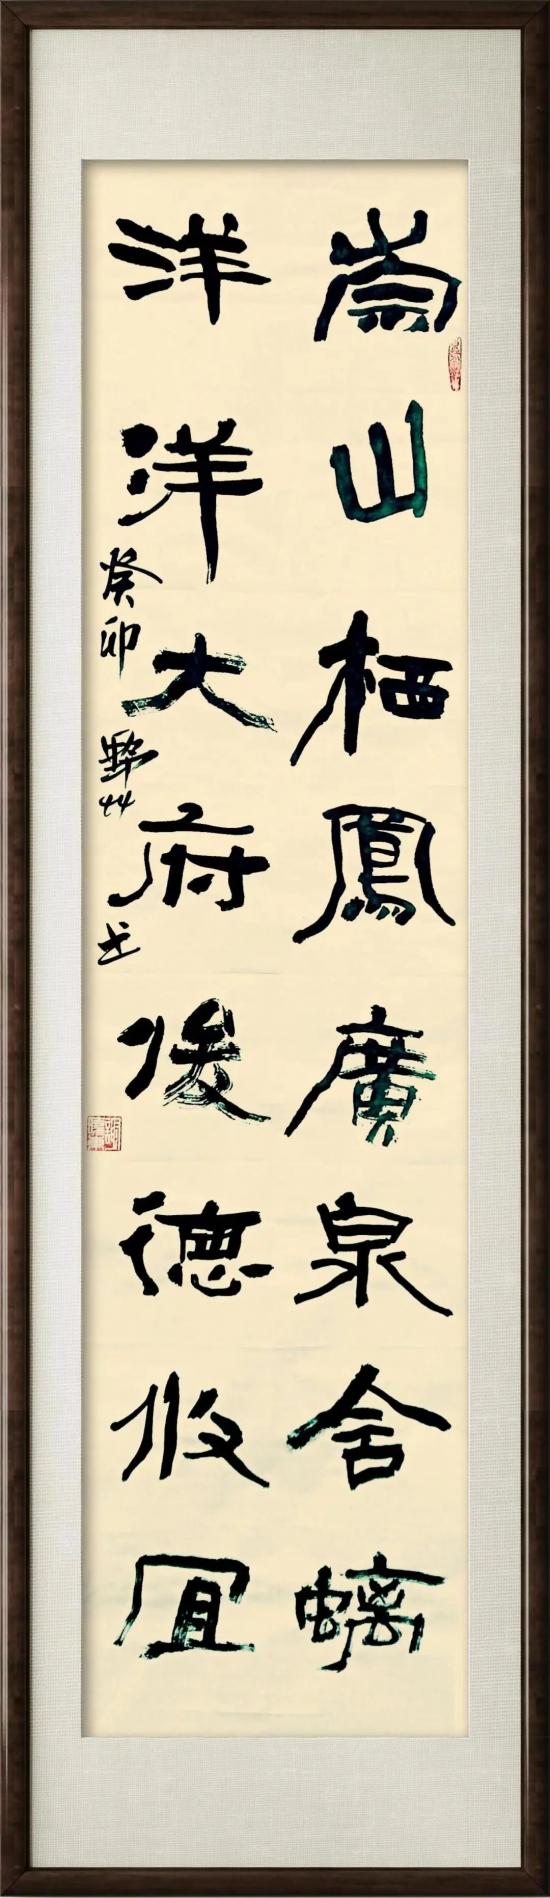 崇山栖鳳廣泉舍螭
洋洋大府俊德攸宜
癸卯 野艸 書